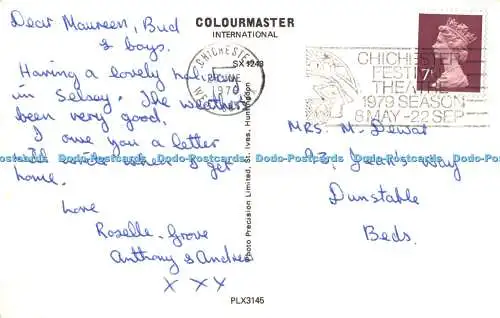 Dear Maureen, Bud
& boys.
Having a lovely holiday
in Selsey. The weather's
been very good.
I owe you a letter
will write when I get
home.
Love
Roselle. Grove
Anthony & Andrea
x x x
COLOURMASTER
INTERNATIONAL
SX 1243
Photo Precision Limited, St. Ives, Huntingdon
PLX3145
CHICHESTER
1979
CHICHESTER
FESTIVAL
THEATRE
1979 SEASON
6 MAY - 22 SEP
7P
MRS. M. Dewar
Way
Dunstable
Beds.
Dodo-Postcards Dodo-Postcards Dodo-Postcards Dodo-Postcards Dodo-Postcards Dodo-Postcards Dodo-Postcards